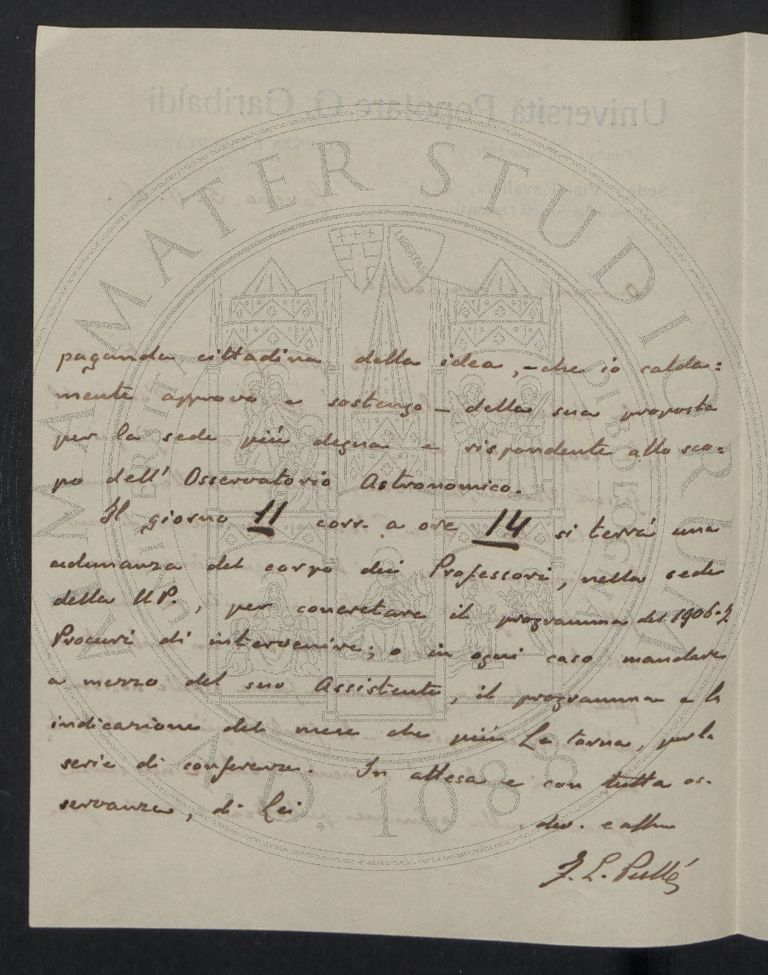 paganda cittadina della idea, – che io calda=
mente approvo e sostengo – della sua proposta
per la sede più degna e rispondente allo sco=
po dell' Osservatorio Astronomico.
Il giorno 11 corr. a ore 14 si terrà una
adunanza del corpo dei Professori, nella sede
della UP., per concretare il programma del 1906-7.
Procuri di intervenire; o in ogni caso mandare
a mezzo del suo Assistente, il programma e la
indicazione del mese che più Le torna, per la
serie di conferenze. In attesa e con tutta os-
servanza, di Lei
dev. e affmo
F. L. Pullé
Università Popolare G. Garibaldi
ALMA MATER STUDIORUM
A.D. 1088
LIBERTAS